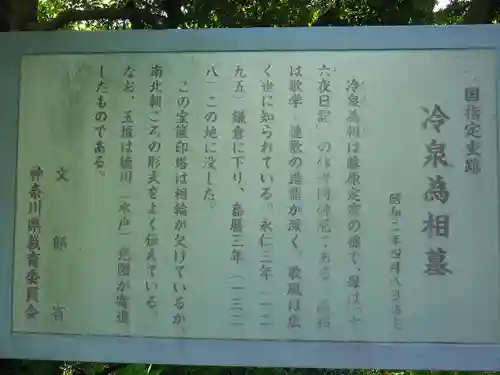 国指定史跡
冷泉為相墓
昭和二年四月八日指定
冷泉為相は藤原定家の孫で、母は「十
六夜日記」の作者阿仏尼である。為相
は歌学・連歌の造詣が深く、歌風は広
く世に知られている。永仁三年(一二
九五)鎌倉に下り、嘉暦三年(一三二
八)この地に没した。
この宝篋印塔は相輪が欠けているが、
南北朝ごろの形式をよく伝えている。
なお、玉垣は徳川(水戸)光圀が寄進
したものである。
文部省
神奈川県教育委員会